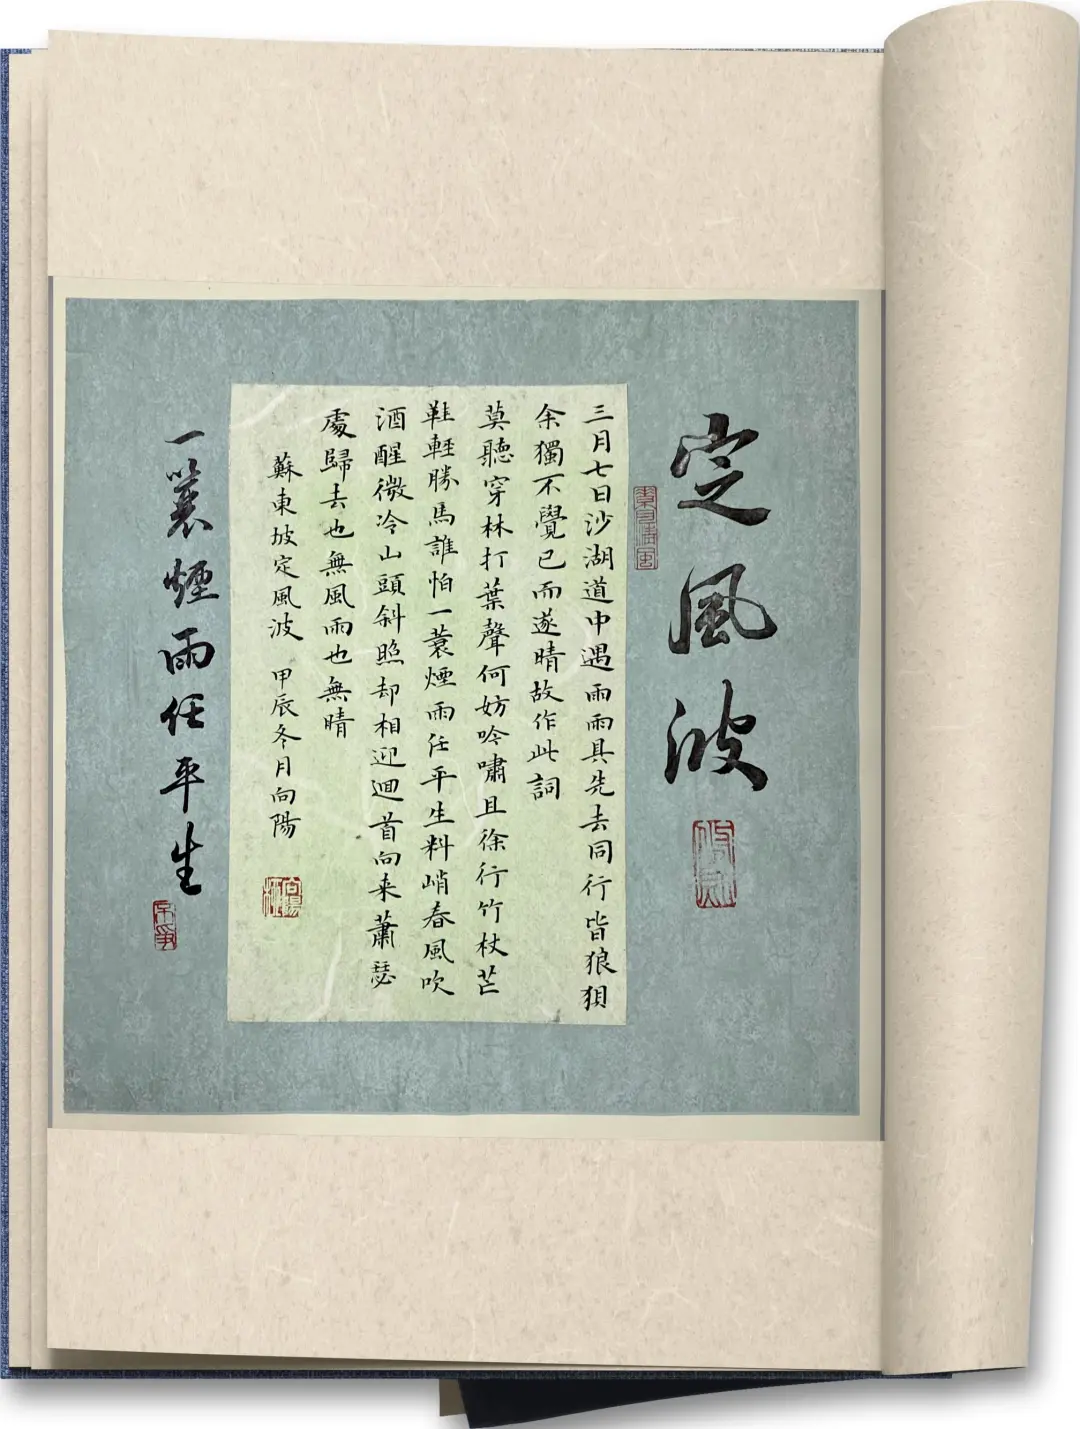 定風波
三月七日沙湖道中遇雨雨具先去同行皆狼狽
余獨不覺已而遂晴故作此詞
莫聽穿林打葉聲何妨吟嘯且徐行竹杖芒
鞋輕勝馬誰怕一蓑煙雨任平生料峭春風吹
酒醒微冷山頭斜照却相迎迴首向来蕭瑟
處歸去也無風雨也無晴
蘇東坡定風波 甲辰冬月向陽
一蓑煙雨任平生